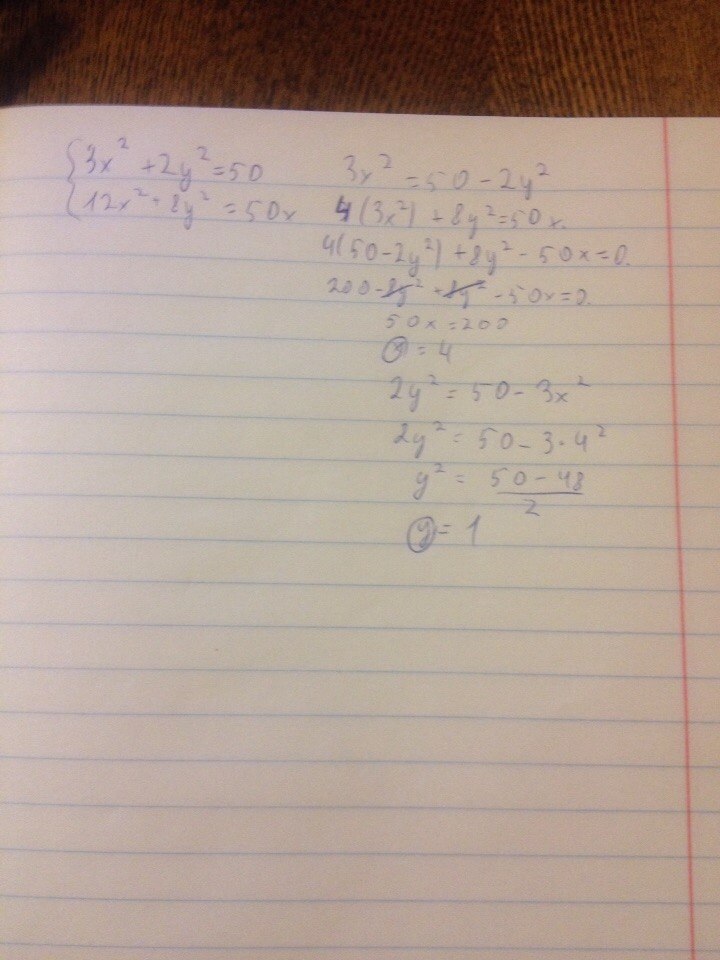 {3x² + 2y² = 50
12x² + 8y² = 50x
3x² = 50 - 2y²
4(3x²) + 8y² = 50x.
4(50 - 2y²) + 8y² - 50x = 0.
200 - 8y² + 8y² - 50x = 0.
50x = 200
x = 4
2y² = 50 - 3x²
2y² = 50 - 3·4²
y² = (50 - 48)/2
y = 1